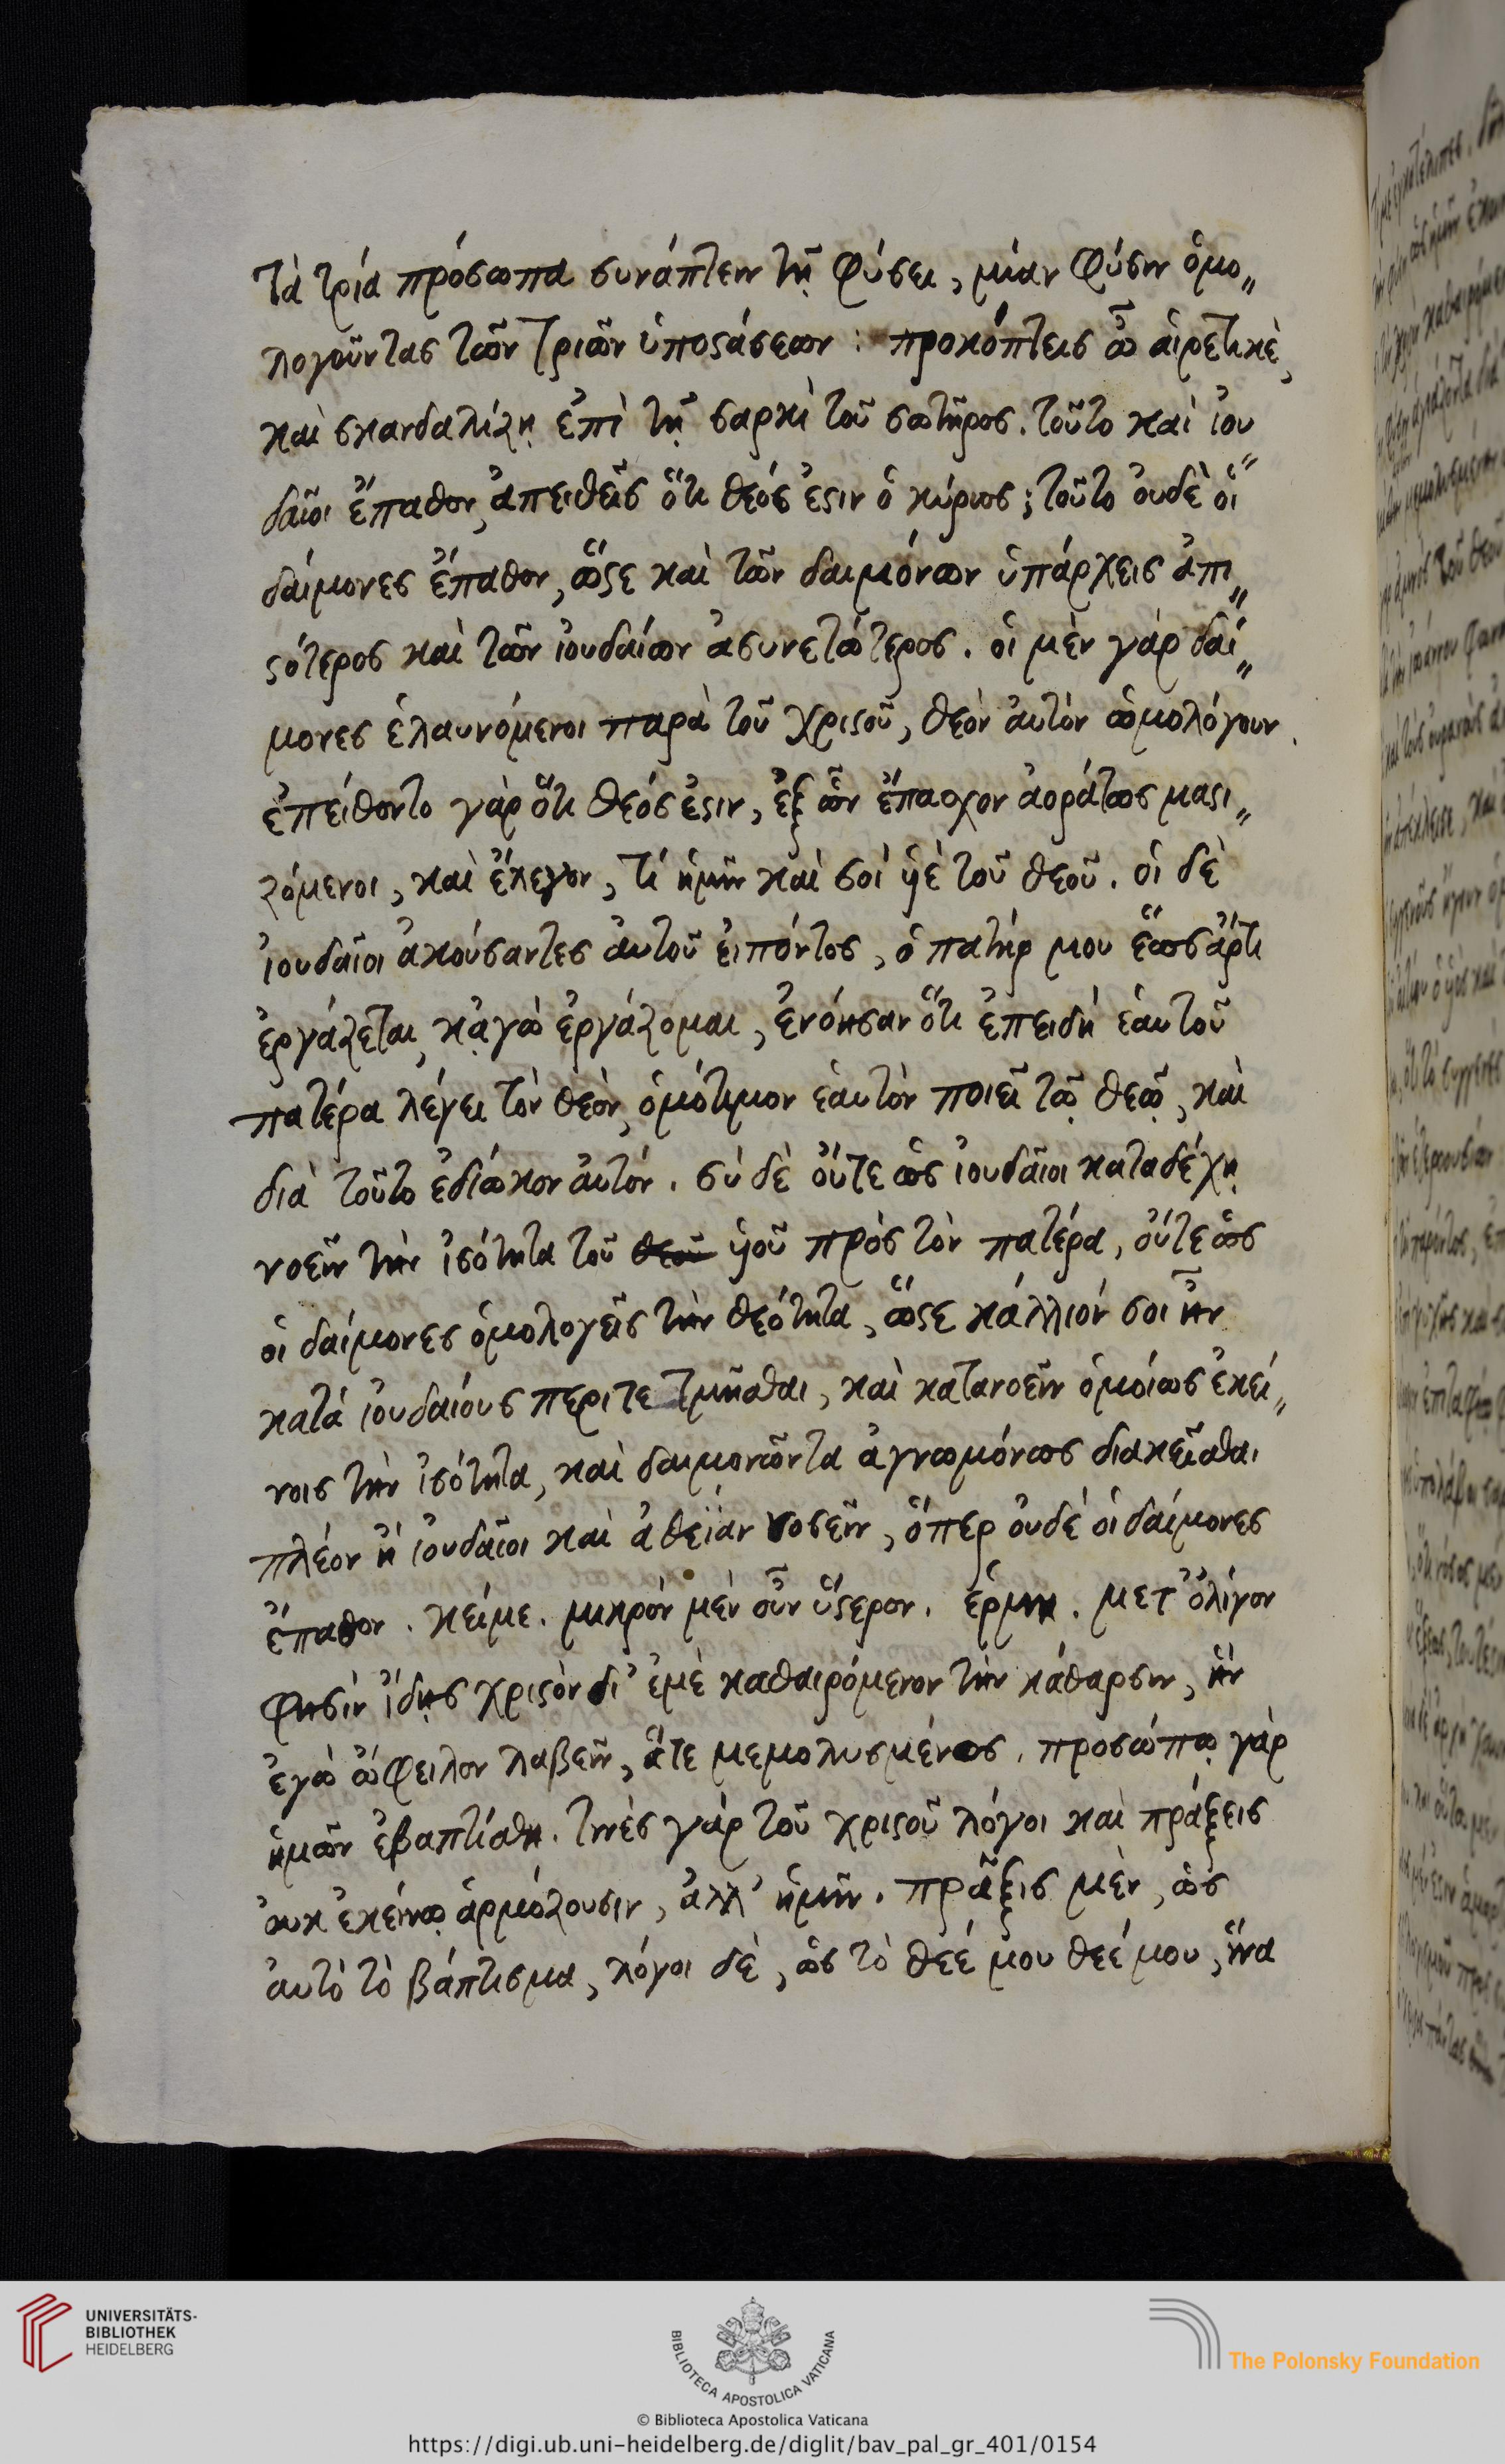 τὰ τρία πρόσωπα συνάπτειν τῇ φύσει, μίαν φύσιν ὁμο„
λογοῦντας τῶν τριῶν ὑποϛάσεων : προκόπτεις ὦ αἱρετικὲ,
καὶ σκανδαλίζῃ ἐπὶ τῇ σαρκὶ τοῦ σωτῆρος. τοῦτο καὶ ἰου„
δαῖοι ἔπαθον, ἀπειθεῖς ὅτι θεός ἐϛιν ὁ κύριος; τοῦτο οὐδὲ οἱ
δαίμονες ἔπαθον, ὥϛε καὶ τῶν δαιμόνων ὑπάρχεις ἀπι„
ϛότερος καὶ τῶν ἰουδαίων ἀσυνετώτερος. οἱ μὲν γὰρ δαί„
μονες ἐλαυνόμενοι παρὰ τοῦ χριϛοῦ, θεὸν ἀυτὸν ὡμολόγουν.
ἐπείθοντο γὰρ ὅτι θεός ἐϛιν, ἐξ ὧν ἔπασχον ἀοράτως μαϛι„
ζόμενοι, καὶ ἔλεγον, τί ἡμῖν καὶ σοὶ ὑιὲ τοῦ θεοῦ. οἱ δὲ
ἰουδαῖοι ἀκούσαντες ἀυτοῦ ἐιπόντος, ὁ πατήρ μου ἕως ἄρτι
ἐργάζεται, κᾀγὼ ἐργάζομαι, ἐνόησαν ὅτι ἐπειδὴ ἑαυτοῦ
πατέρα λέγει τὸν θεὸν, ὁμότιμον ἑαυτὸν ποιεῖ τῷ θεῷ, καὶ
διὰ τοῦτο ἐδίωκον ἀυτόν. σὺ δὲ οὔτε ὡς ἰουδαῖοι καταδέχῃ
νοεῖν τὴν ἰσότητα τοῦ θεοῦ ὑιοῦ πρὸς τὸν πατέρα, οὔτε ὡς
οἱ δαίμονες ὁμολογεῖς τὴν θεότητα, ὥϛε κάλλιόν σοι ἦν
κατὰ ἰουδαίους περιτετμῆσθαι, καὶ κατανοεῖν ὁμοίως ἐκεί„
νοις τὴν ἰσότητα, καὶ δαιμονῶντα ἀγνωμόνως διακεῖσθαι
πλέον ἢ ἰουδαῖοι καὶ ἀθεΐαν νοσεῖν, ὅπερ οὐδὲ οἱ δαίμονες
ἔπαθον. κείμε. μικρὸν μὲν οὖν ὕϛερον. ἑρμη. μετ' ὀλίγον
φησὶν ἴδῃς χριϛὸν δι' ἐμὲ καθαιρόμενον τὴν κάθαρσιν, ἣν
ἐγὼ ὤφειλον λαβεῖν, ἅτε μεμολυσμένος. προσώπῳ γὰρ
ἡμῶν ἐβαπτίσθη. τινὲς γὰρ τοῦ χριϛοῦ λόγοι καὶ πράξεις
ὀυκ ἐκείνῳ ἁρμόζουσιν, ἀλλ' ἡμῖν. πρᾶξις μὲν, ὡς
ἀυτὸ τὸ βάπτισμα, λόγοι δὲ, ὡς τὸ θεέ μου θεέ μου, ἵνα
UNIVERSITÄTS-
BIBLIOTHEK
HEIDELBERG
BIBLIOTECA APOSTOLICA VATICANA
The Polonsky Foundation
© Biblioteca Apostolica Vaticana
https://digi.ub.uni-heidelberg.de/diglit/bav_pal_gr_401/0154